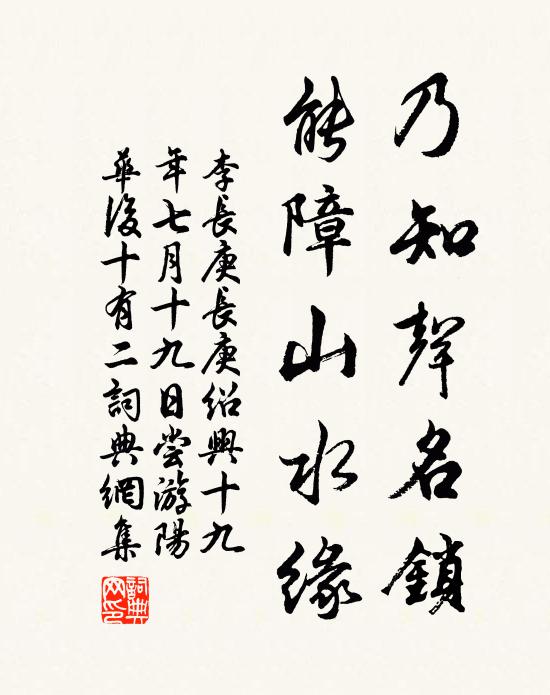 乃知聲名鎖
能障山水緣
李長庚長庚紹興十九
年七月十九日嘗游陽
華後十有二詞典網集
詞典網印